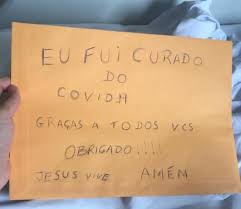 EU FUI CURADO
DO
COVID19
GRAÇAS A TODOS VCS
OBRIGADO!!!!
JESUS VIVE AMÉM